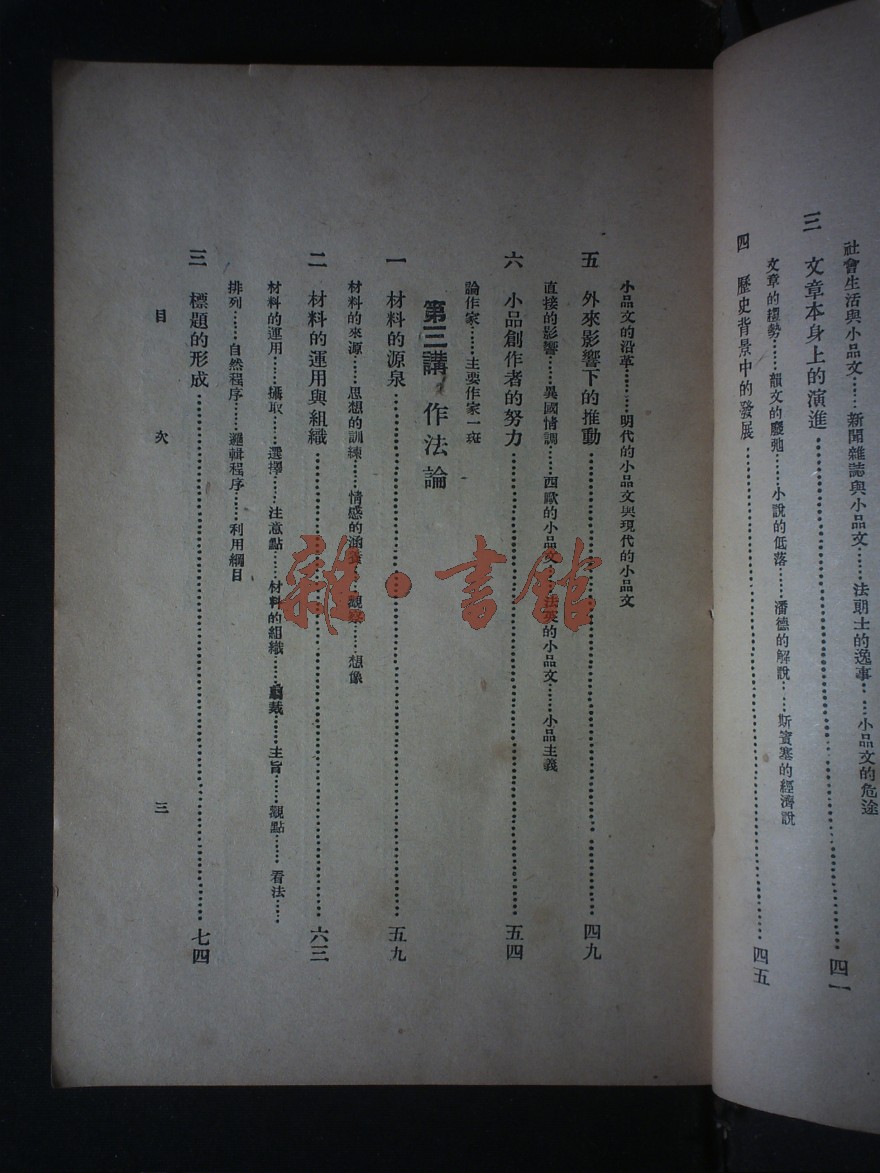 社會生活與小品文……新聞雜誌與小品文……法朗士的逸事……小品文的危途
三 文章本身上的演進……四一
文章的趨勢……韻文的廢弛……小說的低落……潘德的解說……斯賓塞的經濟說
四 歷史背景中的發展……四五
小品文的沿革……明代的小品文與現代的小品文
五 外來影響下的推動……四九
直接的影響……異國情調……西歐的小品文……法英的小品文……小品主義
六 小品創作者的努力……五四
論作家……主要作家一斑
第三講 作法論
一 材料的源泉……五九
材料的來源……思想的訓練……情感的涵養……觀察……想像
二 材料的運用與組織……六三
材料的運用……攝取……選擇……注意點……材料的組織……剪裁……主旨……觀點……看法……
排列……自然程序……邏輯程序……利用綱目
三 標題的形成……七四
目 次 三
雜·書館